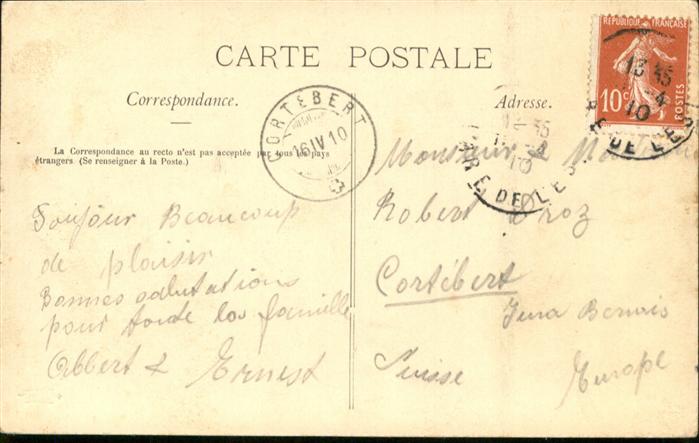 CARTE POSTALE
Correspondance.
La Correspondance au recto n'est pas acceptée par tous les pays
étrangers (Se renseigner à la Poste.)
Toujour Beaucoup
de plaisir
Bonnes salutations
pour toute la famille
Albert & Ernest
CORTÉBERT
16 IV 10
Adresse.
Monsieur &
Robert Droz
Cortébert
Jura Bernois
Suisse
Europe
RÉPUBLIQUE FRANÇAISE
10c
POSTES
13 45
10
DE LES